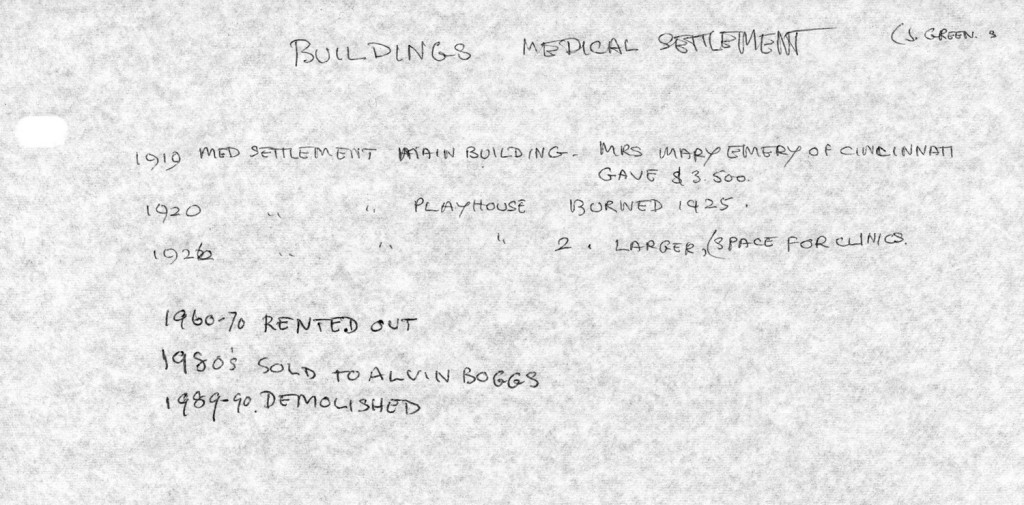 BUILDINGS MEDICAL SETTLEMENT (J. GREEN. s
1919 MED SETTLEMENT MAIN BUILDING. MRS MARY EMERY OF CINCINNATI
GAVE $ 3.500.
1920 " " PLAYHOUSE BURNED 1925.
1926 " " " 2. LARGER, (SPACE FOR CLINICS.
1960-70 RENTED OUT
1980's SOLD TO ALVIN BOGGS
1989-90. DEMOLISHED